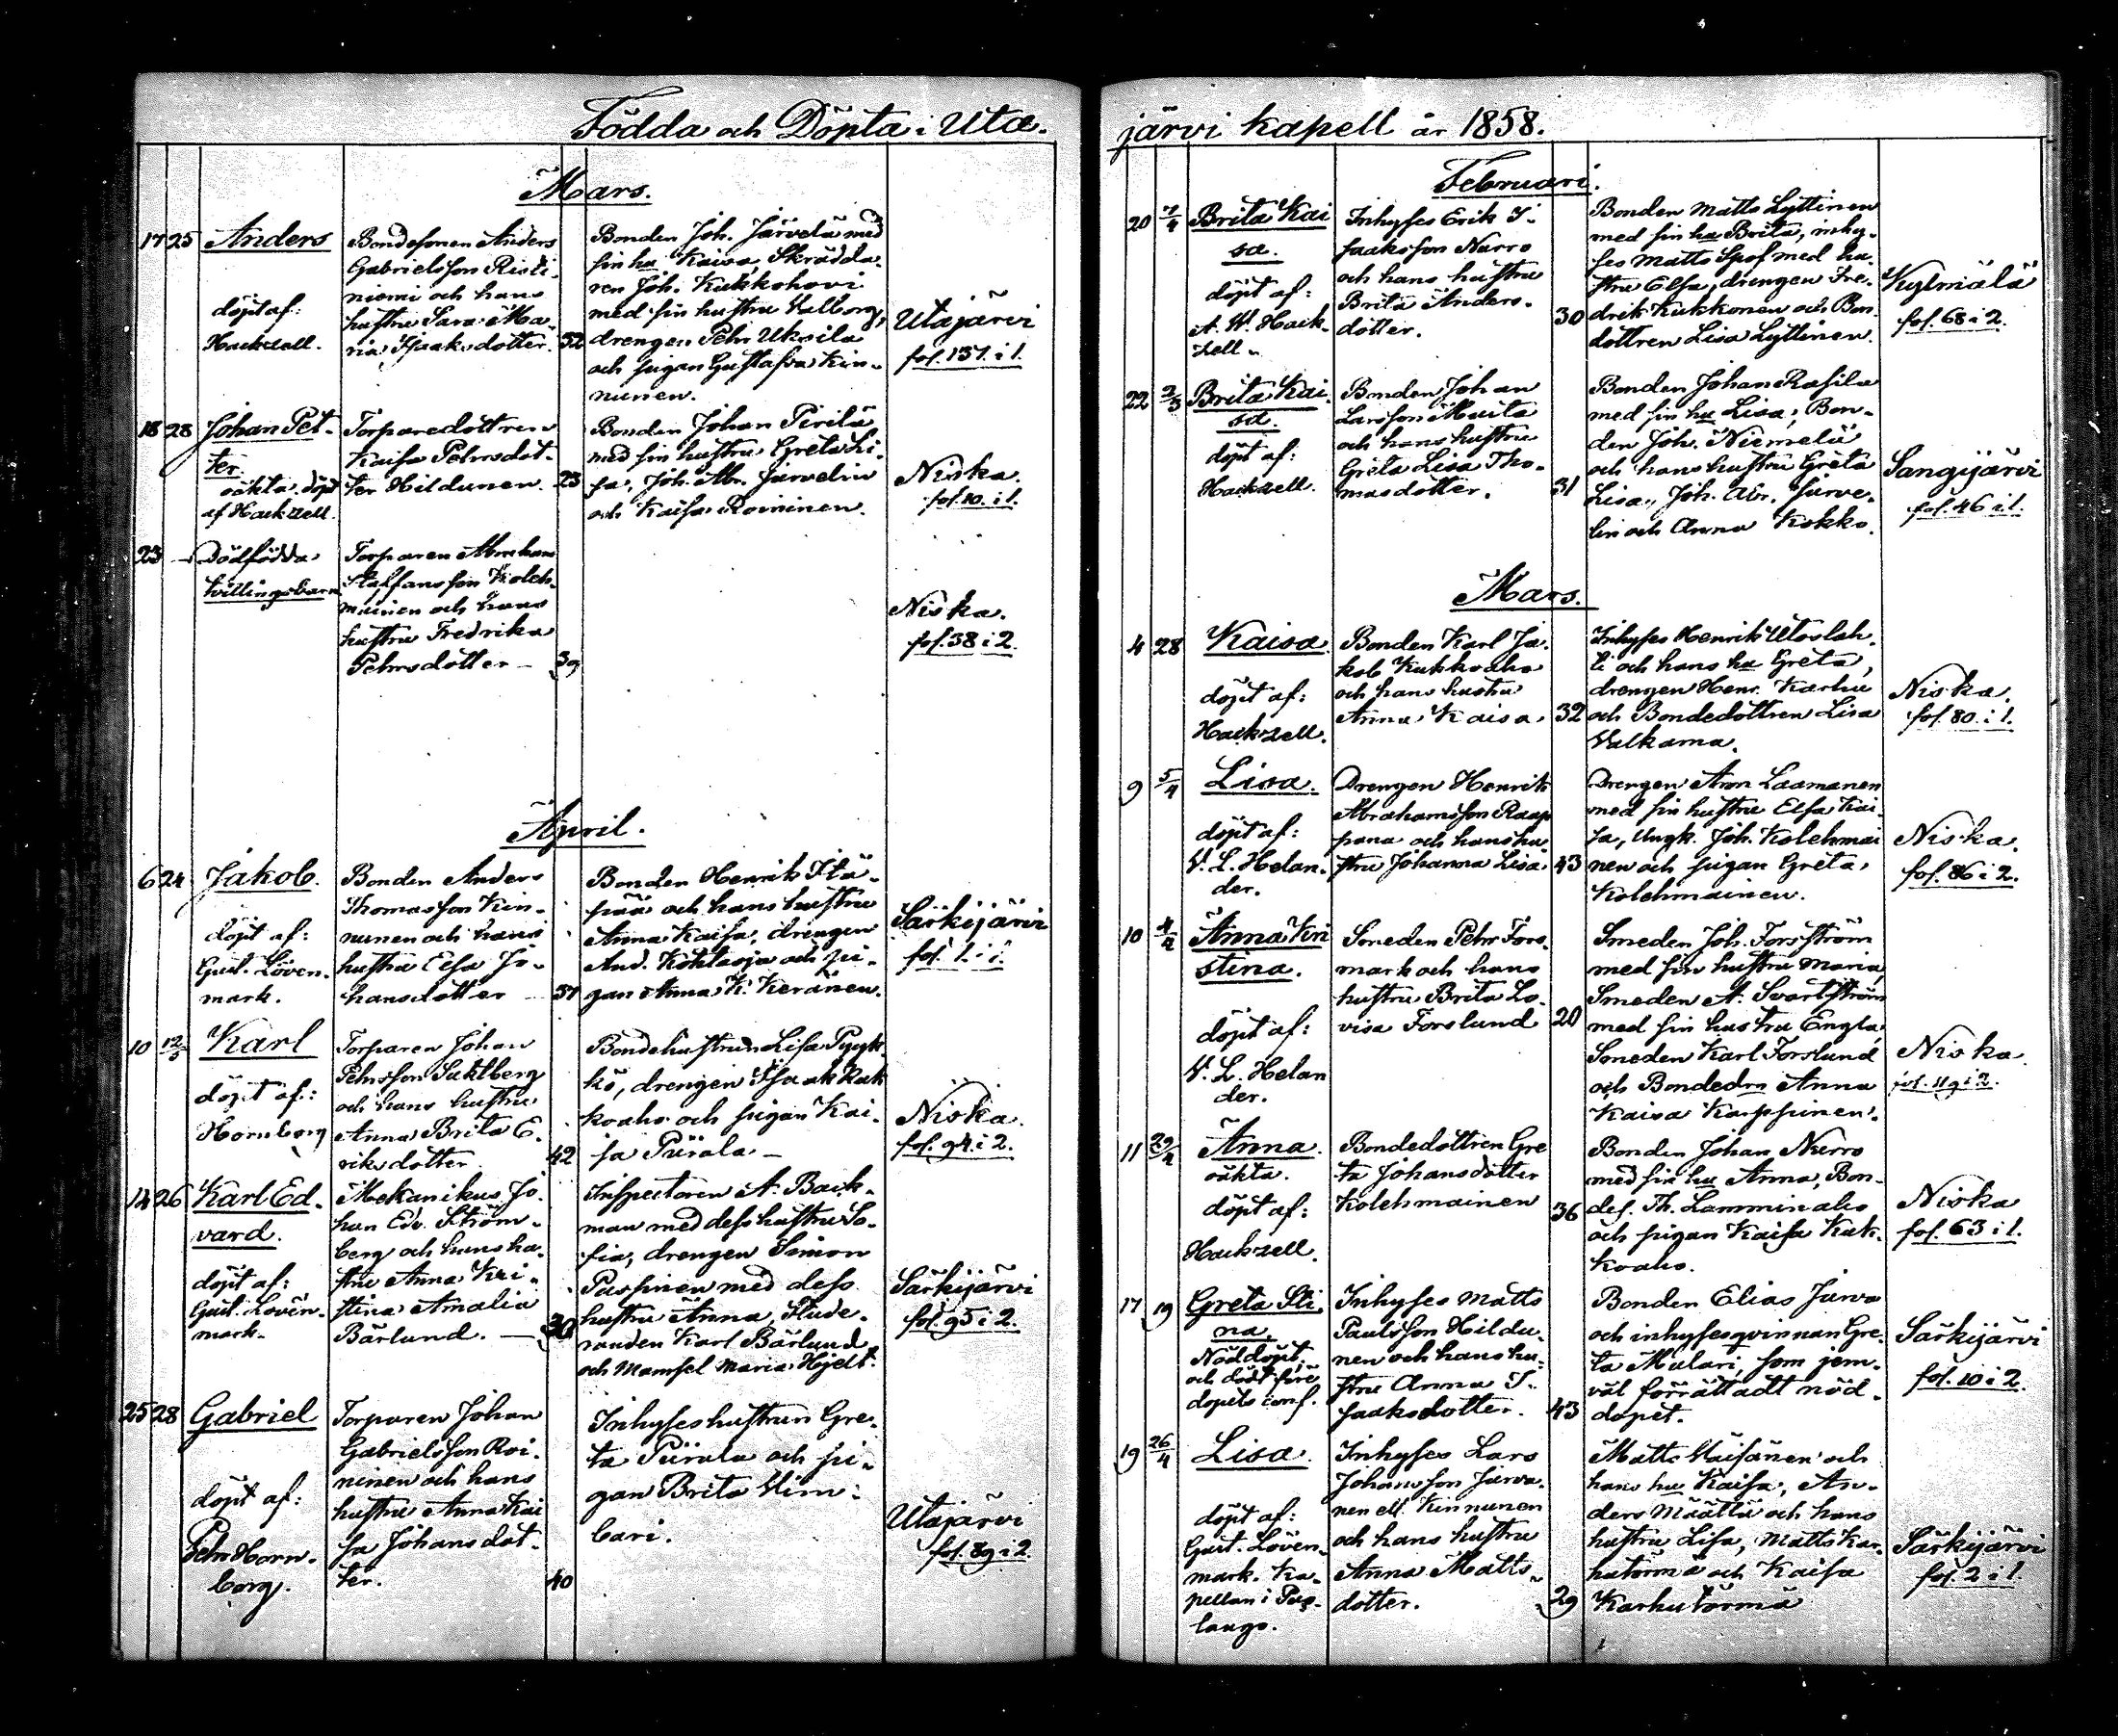 Födda och Döpta i Uta-
Mars.
17 25 Anders
döpt af:
Hackzell.
Bondesonen Anders
Gabrielsson Risti-
niemi och hans
hustru Sara Ma-
ria Isaksdotter. 32
Bonden Joh. Järvelä med
sin hu Kaisa Skrädda-
ren Joh. Kukkohovi
med sin hustru Valborg,
drengen Pehr Uksila
och pigan Gustafva Kin-
nunen.
Utajärvi
fol. 137. i 1.
18 28 Johan Pet-
ter.
oäkta. döpt
af Hackzell.
Torparedottren
Kaisa Pehrsdot-
ter Hildunen. 23
Bonden Johan Pirilä
med sin hustru Greta Li-
sa, Joh. Abr. Järvelin
och Kaisa Roininen.
Niska.
fol. 10. i 1.
23 – Dödfödda
tvillingabarn
Torparen Abraham
Staffansson Kolch-
mainen och hans
hustru Fredrika
Pehrsdotter – 39
Niska.
fol. 38 i 2.
April.
6 24 Jakob.
döpt af:
Gust. Löven-
mark.
Bonden Anders
Thomasson Kin-
nunen och hans
hustru Elsa Jo-
hansdotter – 37
Bonden Henrik Ylä-
pää och hans hustru
Anna Kaisa, drengen
And. Kohlaoja och pi-
gan Anna K. Keränen.
Särkijärvi
fol. 1. i 1.
10 12/5 Karl
döpt af:
Hornborg
Torparen Johan
Pehrsson Sahlberg
och hans hustru
Anna Brita E-
riksdotter 42
Bondehustrun Lisa Pyyk-
kö, drengen Isaak Kuk
koaho och pigan Kai-
sa Piirala –
Niska.
fol. 94. i 2.
14 26 Karl Ed-
vard.
döpt af:
Gust. Löven-
mark.
Mekanikus Jo-
han Edv. Ström-
berg och hans hu-
stru Anna Kri-
stina Amalia
Bärlund. – 30
Inspectoren A. Back-
man med dess hustru So-
fia, drengen Simon
Puspinen med dess
hustru Anna, Stude-
randen Karl Bärlund
och Mamsel Maria Hjelt.
Särkijärvi
fol. 95 i 2.
25 28 Gabriel
döpt af:
Pehr Horn-
borg.
Torparen Johan
Gabrielsson Roi-
ninen och hans
hustru Anna Kai
sa Johansdot-
ter. 40
Inhyseshustrun Gre-
ta Piirala och pi-
gan Brita Vim-
bari.
Utajärvi
fol. 89 i 2
järvi kapell år 1858.
Februari.
20 7/4 Brita Kai
sa.
döpt af:
A. W. Hack-
zell.
Inhyses Erik I-
saaksson Nurro
och hans hustru
Brita Anders-
dotter. 30
Bonden Matts Lyttinen
med sin hu Brita, inhy-
ses Matts Spof med hu-
stru Elsa, drengen Fre-
drik Kukkonen och Bon-
dottren Lisa Lyttinen.
Kylmälä
fol. 68 i 2.
22 2/3 Brita Kai-
sa.
döpt af:
Hackzell.
Bonden Johan
Larsson Maita
och hans hustru
Greta Lisa Tho-
masdotter. 31
Bonden Johan Rasila
med sin hu Lisa, Bon-
den Joh. Niemelä
och hans hustru Greta
Lisa, Joh. Abr. Järve-
lin och Anna Kokko.
Sangijärvi
fol. 46 i 1.
Mars.
4 28 Kaisa.
döpt af:
Hackzell.
Bonden Karl Ja-
kob Kukkoaho
och hans hustru
Anna Kaisa 32
Inhyses Henrik Utoslah-
ti och hans hu Greta,
drengen Henr. Karhu
och Bondedottren Lisa
Valkama.
Niska.
fol. 80. i 1.
9 5/4 Lisa.
döpt af:
V. L. Helan-
der.
Drengen Henrik
Abrahamsson Raap
pana och hans hu-
stru Johanna Lisa 43
Drengen Aron Laamanen
med sin hustru Elsa Kai-
sa, Ungk. Joh. Kolehmai
nen och pigan Greta
Kolehmainen.
Niska.
fol. 86 i 2.
10 4/4 Anna Kri
stina.
döpt af:
V. L. Helan
der.
Smeden Pehr Fors-
mark och hans
hustru Brita Lo-
visa Forslund 20
Smeden Joh. Forsström
med sin hustru Maria,
Smeden A. Svartström
med sin hustru Engla,
Smeden Karl Forslund
och Bondedrn Anna
Kaisa Karppinen.
Niska
fol. 119 i 2.
11 29/4 Anna.
oäkta.
döpt af:
Hackzell.
Bondedottren Gre
ta Johansdotter
Kolehmainen 36
Bonden Johan Nurro
med sin hu Anna, Bon-
des. Th. Lamminaho
och pigan Kaisa Kuk-
koaho.
Niska
fol. 63 i 1.
17 19 Greta Sti
na.
Nöddöpt,
och död före
dopets conf.
Inhyses Matts
Paulsson Hildu-
nen och hans hu-
stru Anna I-
saaksdotter. 43
Bonden Elias Jurva
och inhysesqvinnan Gre-
ta Mulari, som jem-
väl förrättadt nöd-
dopet.
Särkijärvi
fol. 10 i 2.
19 26/4 Lisa.
döpt af:
Gust. Löven-
mark. Ka-
pellan i Puo-
lango.
Inhyses Lars
Johansson Jurva-
nen ell. Kinnunen
och hans hustru
Anna Matts-
dotter. 29
Matts Väisänen och
hans hu Kaisa, An-
ders Määttä och hans
hustru Lisa, Matts Kar-
hutörmä och Kaisa
Karhutörmä
Särkijärvi
fol. 2 i 1.